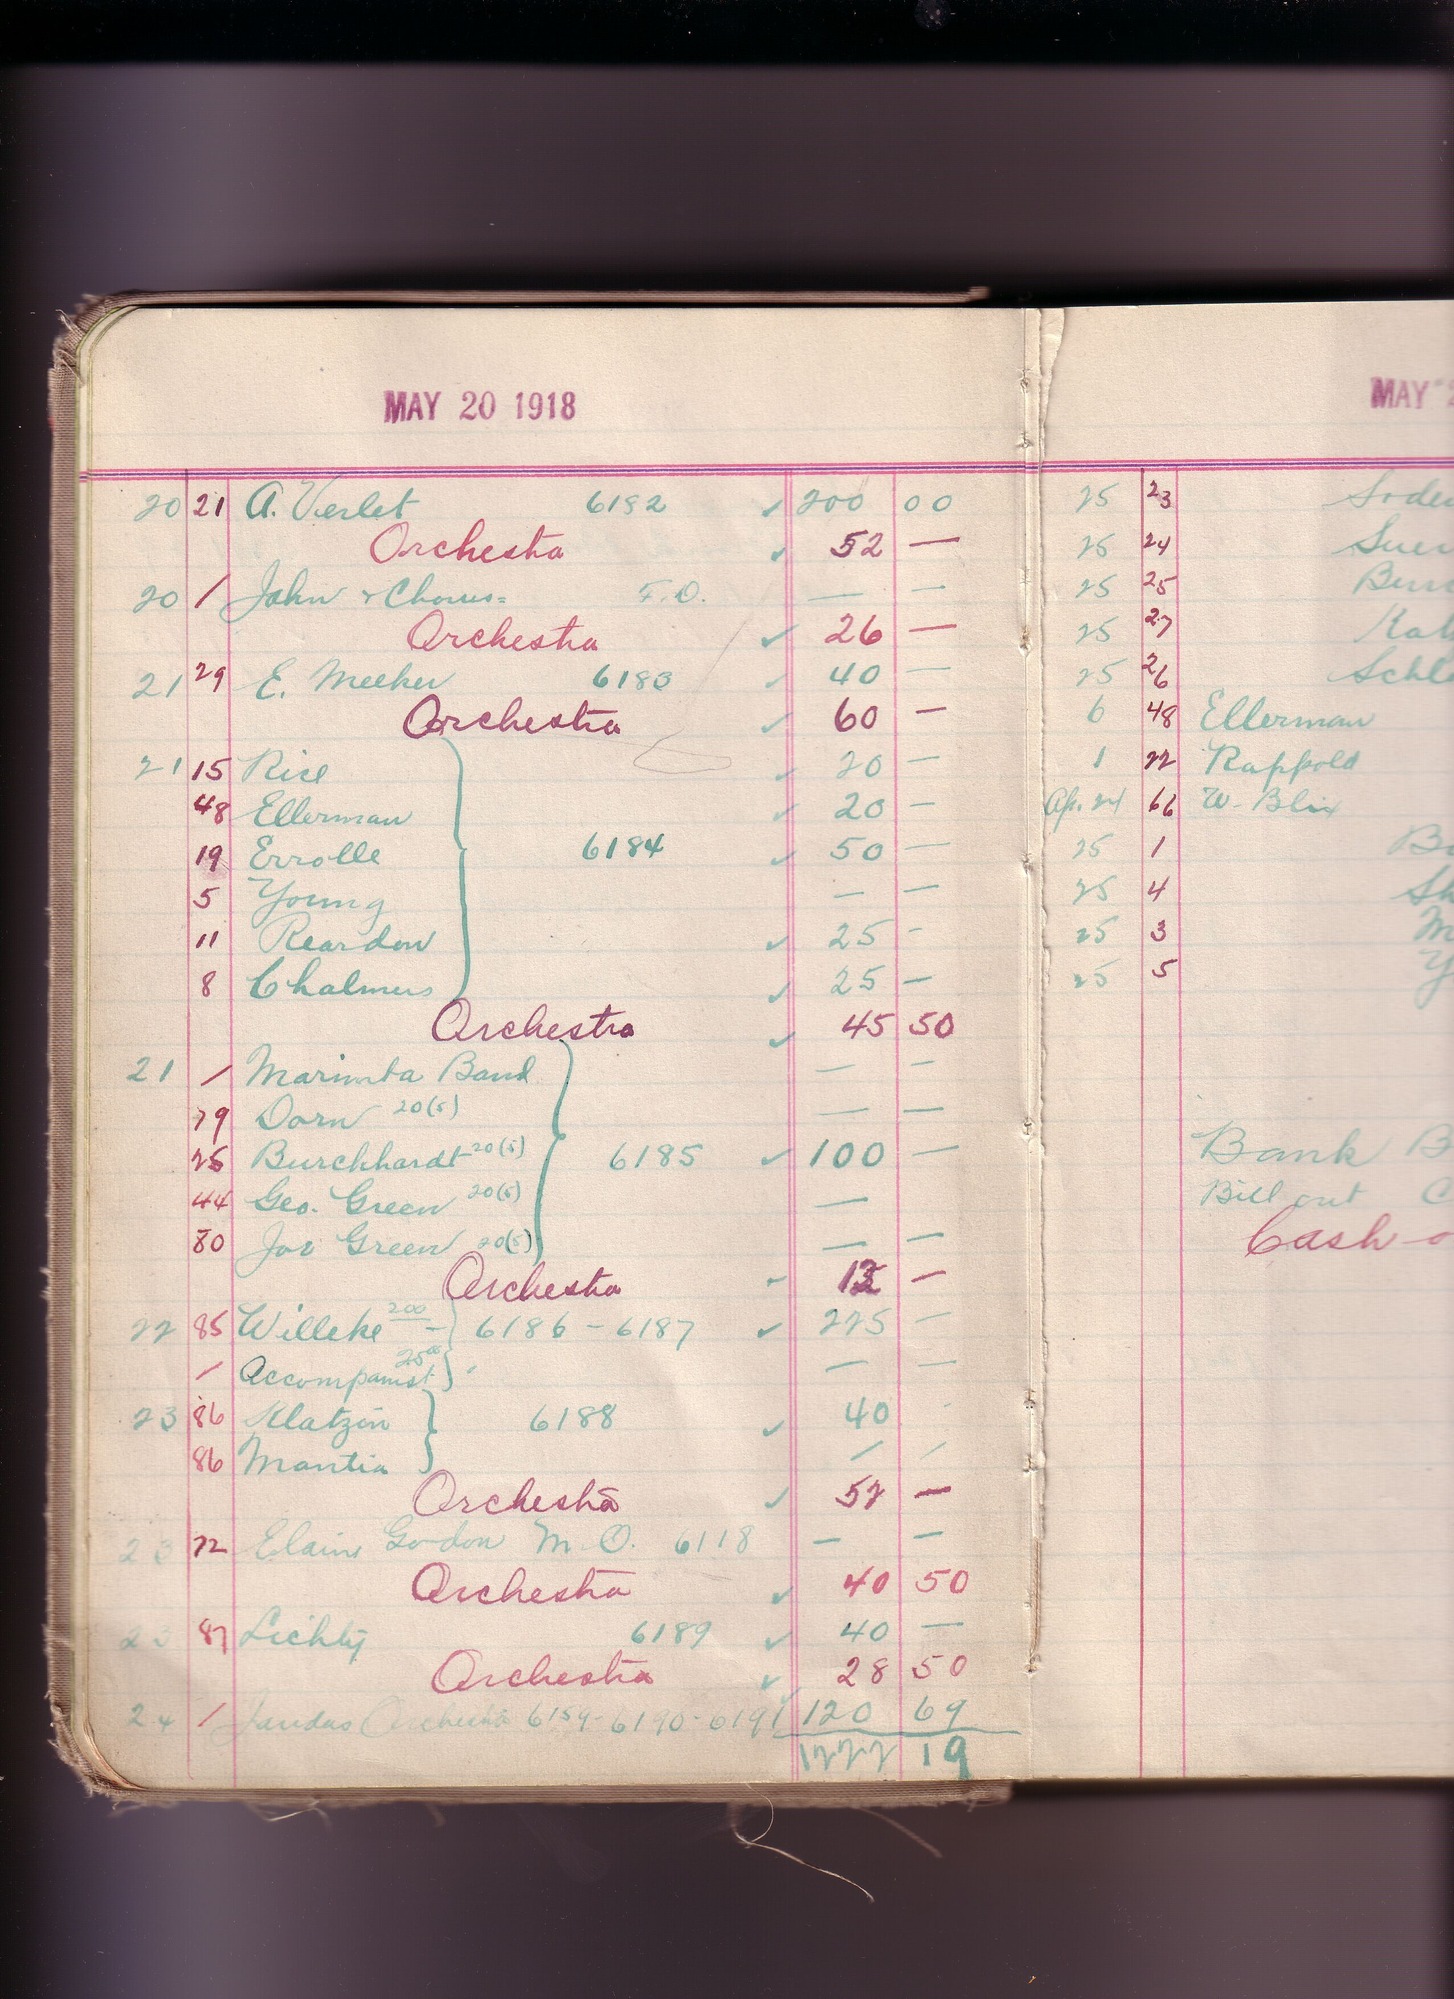 MAY 20 1918
20 21 A. Verlet 6182 ✓ 200 00
Orchestra ✓ 52 —
20 / John & Chorus= F.O. — —
Orchestra ✓ 26 —
21 29 E. Meeker 6183 ✓ 40 —
Orchestra ✓ 60 —
21 15 Rice ✓ 20 —
48 Ellerman ✓ 20 —
19 Errolle 6184 ✓ 50 —
5 Young — —
11 Reardon ✓ 25 -
8 Chalmers ✓ 25 —
Orchestra ✓ 45 50
21 / Marimba Band — —
79 Dorn 20(5) — —
25 Burckhardt 20(5) 6185 ✓ 100 —
44 Geo. Green 20(5) —
80 Joe Green 20(5) — —
Orchestra ✓ 13 —
22 85 Willeke 200 — 6186 - 6187 ✓ 225 —
/ Accompanist 25 00 — —
23 86 Klatzin 6188 ✓ 40
86 Mantia / /
Orchestra ✓ 52 —
23 72 Elaine Gordon M.O. 6118 — —
Orchestra ✓ 40 50
23 87 Lichty 6189 ✓ 40 —
Orchestra ✓ 28 50
24 / Jaudas Orchestra 6159-6190-6191 120 69
1222 19
MAY
25 23 Soder
25 24
25 25
25 27
25 26
6 48 Ellerman
1 22 Rappold
Ap. 24 66 W. Blix
25 1
25 4
25 3
25 5
Bank B
Bill out C
Cash o